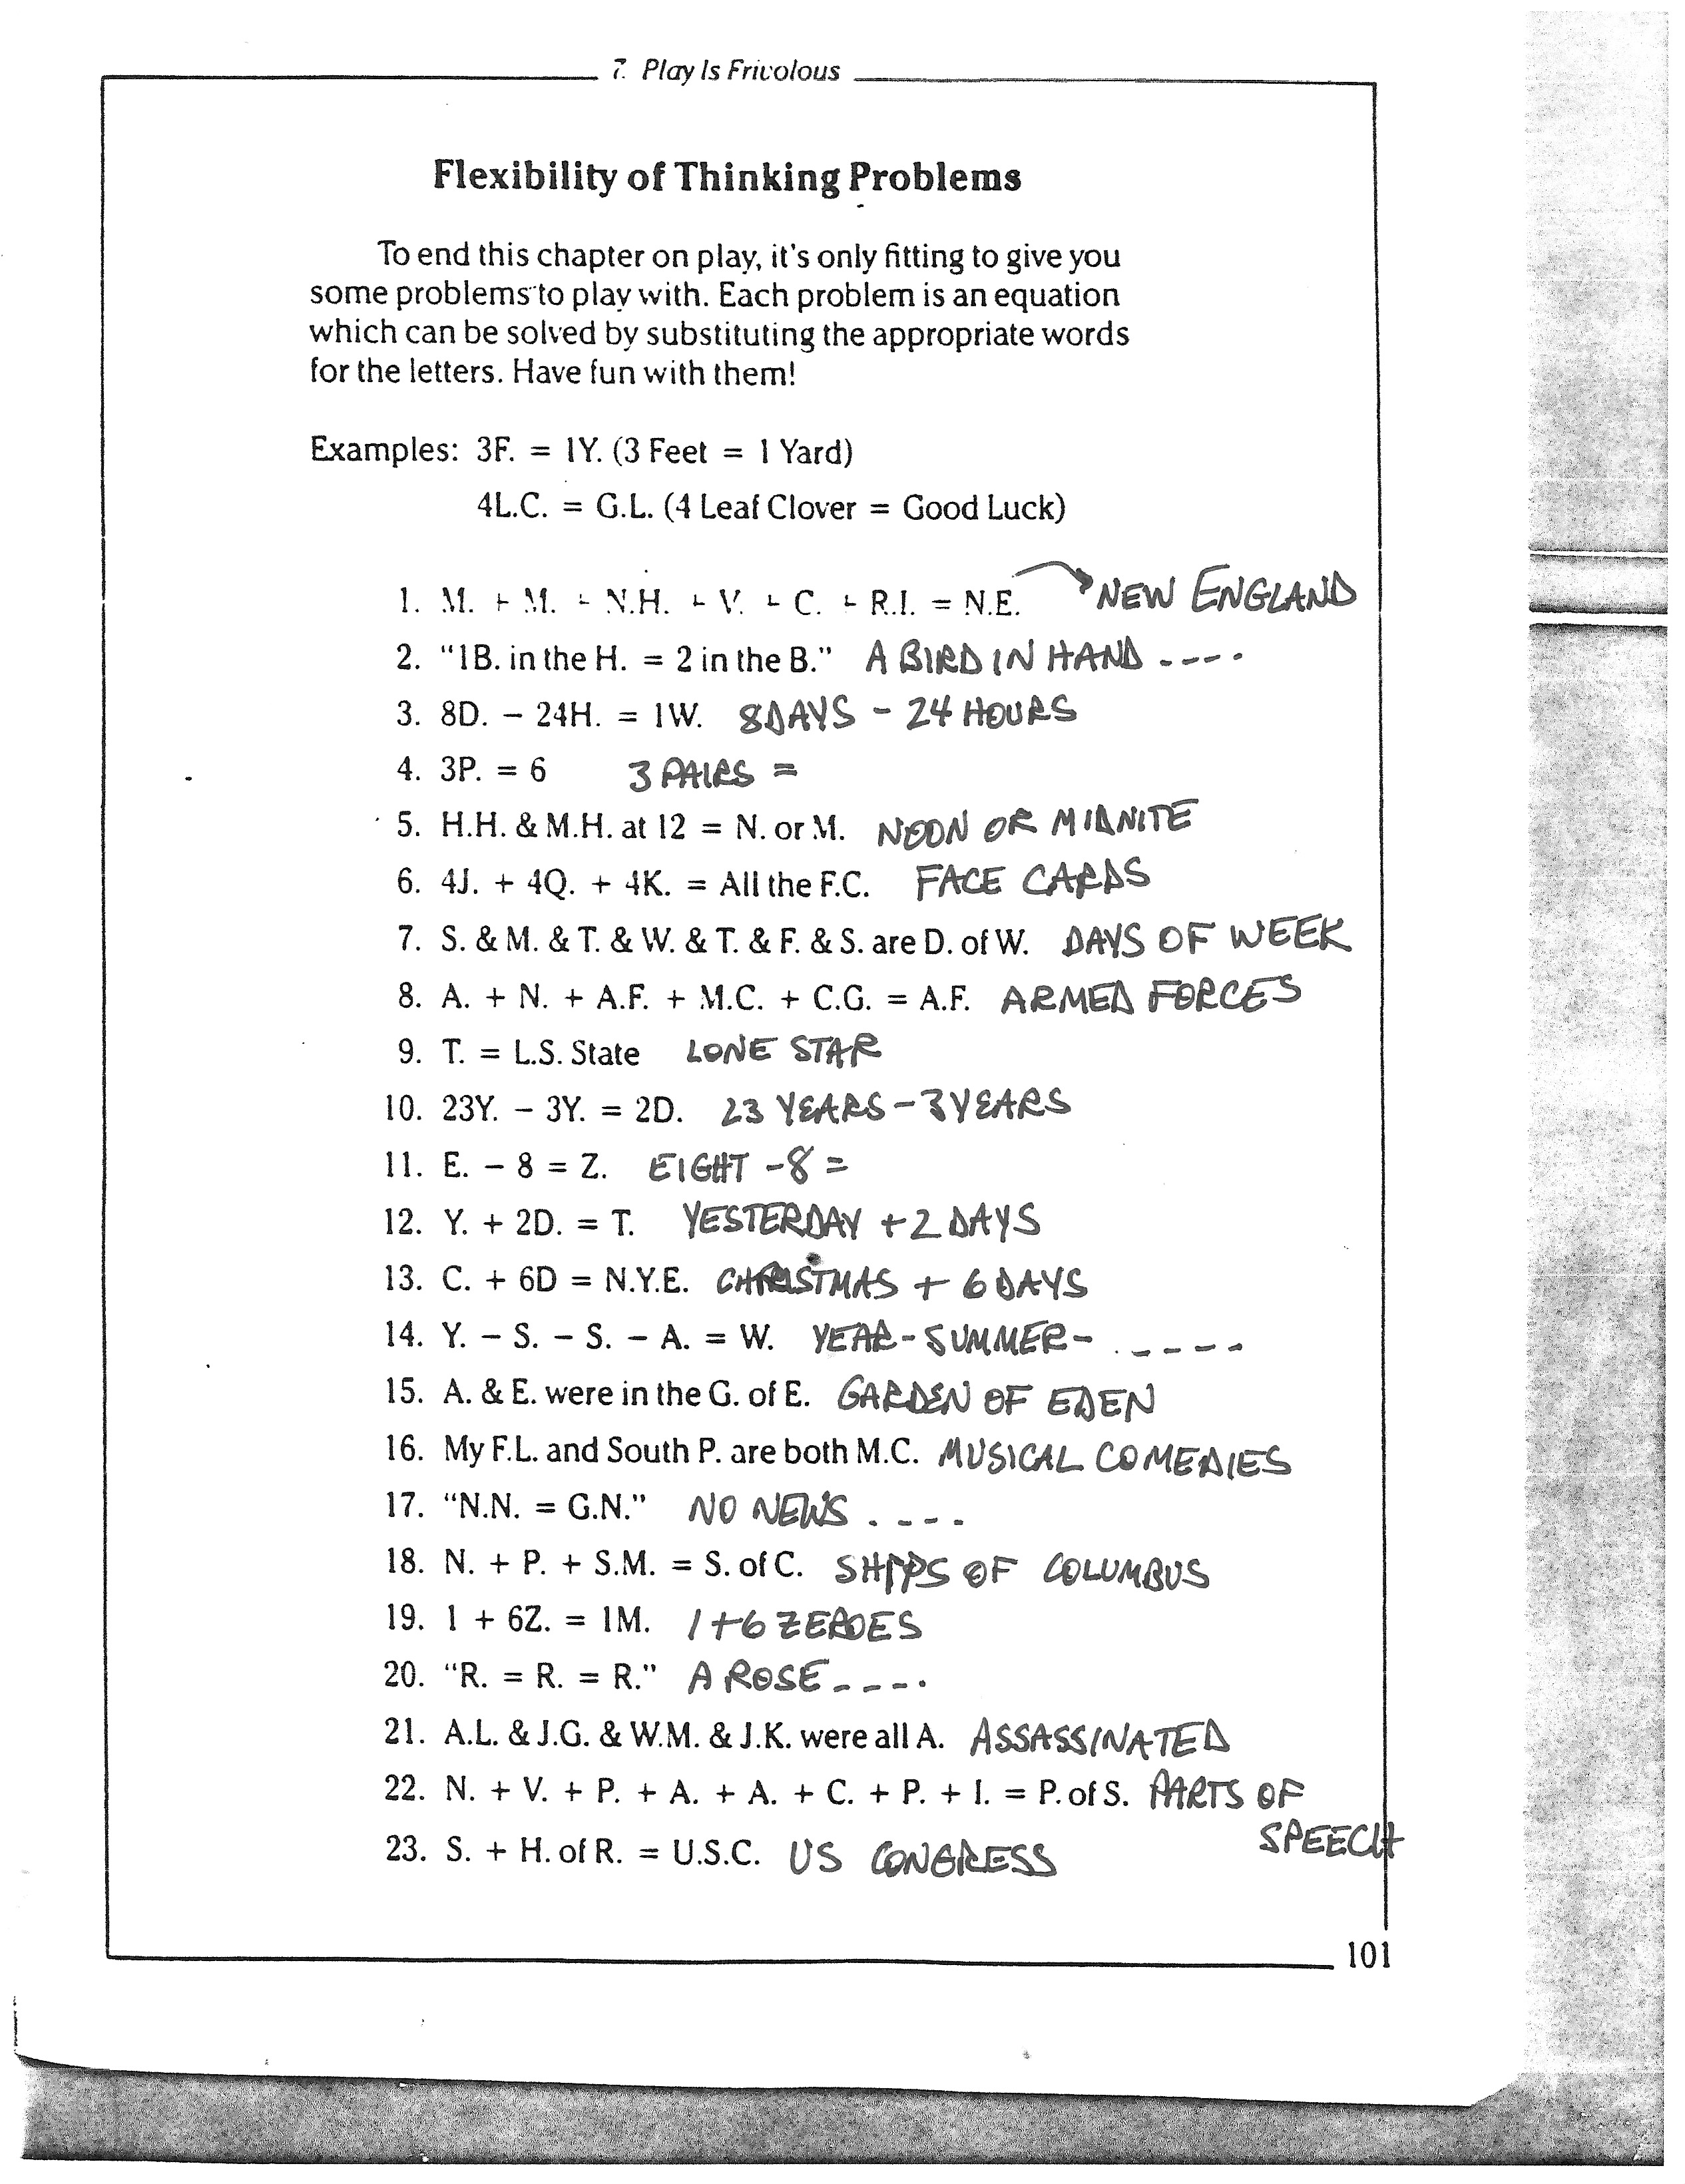 7. Play Is Frivolous
Flexibility of Thinking Problems
To end this chapter on play, it's only fitting to give you
some problems to play with. Each problem is an equation
which can be solved by substituting the appropriate words
for the letters. Have fun with them!
Examples: 3F. = 1Y. (3 Feet = 1 Yard)
4L.C. = G.L. (4 Leaf Clover = Good Luck)
1. M. + M. + N.H. + V. + C. + R.I. = N.E. NEW ENGLAND
2. "1B. in the H. = 2 in the B." A BIRD IN HAND ----
3. 8D. – 24H. = 1W. 8 DAYS - 24 HOURS
4. 3P. = 6 3 PAIRS =
5. H.H. & M.H. at 12 = N. or M. NOON OR MIDNITE
6. 4J. + 4Q. + 4K. = All the F.C. FACE CARDS
7. S. & M. & T. & W. & T. & F. & S. are D. of W. DAYS OF WEEK
8. A. + N. + A.F. + M.C. + C.G. = A.F. ARMED FORCES
9. T. = L.S. State LONE STAR
10. 23Y. – 3Y. = 2D. 23 YEARS - 3 YEARS
11. E. – 8 = Z. EIGHT - 8 =
12. Y. + 2D. = T. YESTERDAY + 2 DAYS
13. C. + 6D = N.Y.E. CHRISTMAS + 6 DAYS
14. Y. – S. – S. – A. = W. YEAR - SUMMER - . ----
15. A. & E. were in the G. of E. GARDEN OF EDEN
16. My F.L. and South P. are both M.C. MUSICAL COMEDIES
17. "N.N. = G.N." NO NEWS . ---
18. N. + P. + S.M. = S. of C. SHIPS OF COLUMBUS
19. 1 + 6Z. = 1M. 1 + 6 ZEROES
20. "R. = R. = R." A ROSE ---.
21. A.L. & J.G. & W.M. & J.K. were all A. ASSASSINATED
22. N. + V. + P. + A. + A. + C. + P. + I. = P. of S. PARTS OF
SPEECH
23. S. + H. of R. = U.S.C. US CONGRESS
101